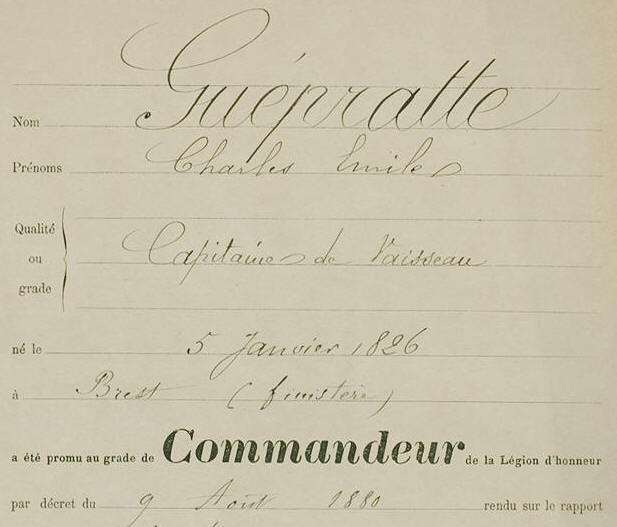 Nom Guépratte
Prénoms Charles Emile
Qualité
ou
grade
Capitaine de Vaisseau
né le 5 Janvier 1826
à Brest (finistère)
a été promu au grade de Commandeur de la Légion d'honneur
par décret du 9 Août 1880 rendu sur le rapport